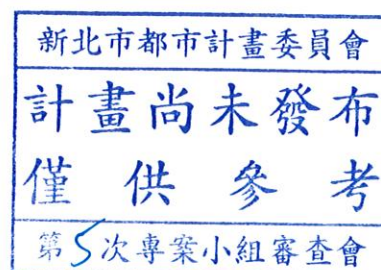 新北市都市計畫委員會
計畫尚未發布
僅供參考
第5次專案小組審查會